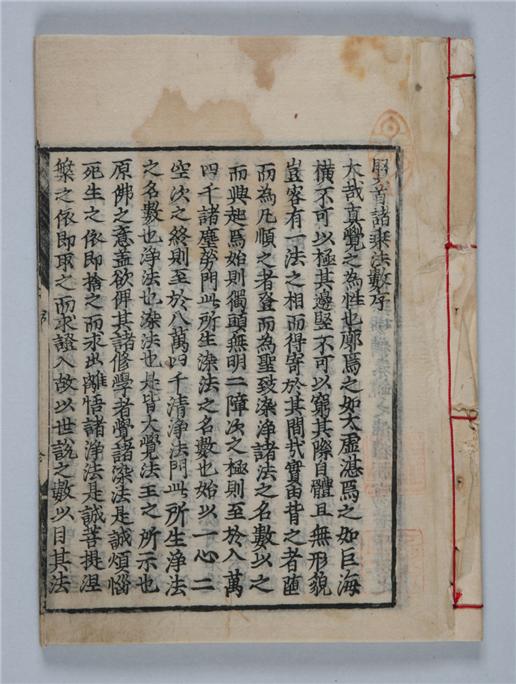 賢首諸乘法數序
大哉真覺之為性也廓焉之如太虛湛焉之如巨海
橫不可以極其邊竪不可以窮其際自體且無形貌
豈容有一法之相而得寄於其間㢤實由背之者
而為凡順之者登而為聖致染淨諸法之名數以之
而興起焉始則獨頭無明二障次之極則至於八萬
四千諸塵勞門此所生染法之名數也始以一心二
空次之終則至於八萬四千清淨法門此所生淨法
之名數也淨法也染法也是皆大覺法王之所示也
原佛之意盖欲俾其諸修學者覺諸染法是誠煩惱
死生之依即捨之而求出離悟諸淨法是誠菩提涅
槃之依即取之而求證入故以世說之數以目其法